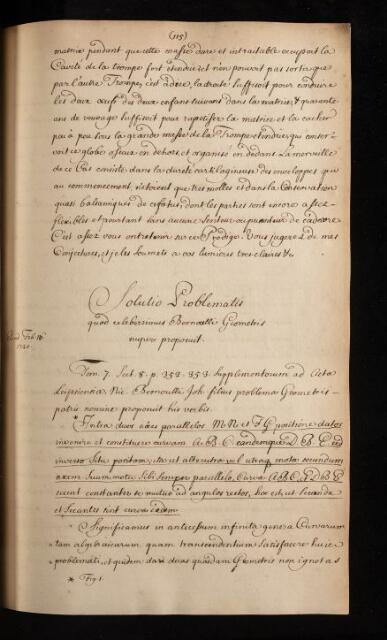 (115)
matrice pendant que cette masse dure et intraitable occupoit la
Cavité de la trompe fort étendue et n'en pouvoit pas sortir, que
par l'autre Trompe, c'est à dire, la droite suffisoit pour conduire
les deux œufs des deux enfans suivant dans la matrice, quarante
ans de veuvage suffisoit pour rapetisser la matrice et la cacher
peu à peu sous la grande masse de la Trompe étendue qui conser-
voit ce globe osseux en dehors, et organisé en dedans. La merveille
de ce Cas consiste dans la dureté cartilagineuse des enveloppes qui
au commencement n'étoient que tres molles et dans la Conservation
quasi balsamique de ce fœtus, dont les parties sont encore assez
flexibles et pourtant sans aucune senteur ou pourriture de cadavre
C'est assez vous entretenir sur ce Prodige. Vous jugerez de mes
Conjectures, et je les soumets à vos lumieres tres claires &c.
Solutio Problematis
quod celeberrimus Bernoulli Geometris
nuper proposuit.
Feb. 16
1721.
Tom. 7. Sect. 8. p. 353. 353 supplementorum ad Acta
Lipsiensia Nic. Bernoulli Joh. filius problema Geometris
patris nomine proponit his verbis.
* Intra duos axes parallelos M N et F G positione datos
invenire et constituere curvam A B C eandemque D B E in
inverso situ positam, ita ut alterutra vel utraque mota secundum
axem suum motu sibi semper parallelo, Curvæ A B C et D B E
secent constanter se mutuo ad angulos rectos, hoc est, ut secanda
et secantes sint curvæ eædem
Significamus in antecessum infinita genera Curvarum
tam algebraicarum quam transcendentium satisfacere huic
problemati, et quidem dari duas quasdam Geometris non ignotas
* Fig. 1